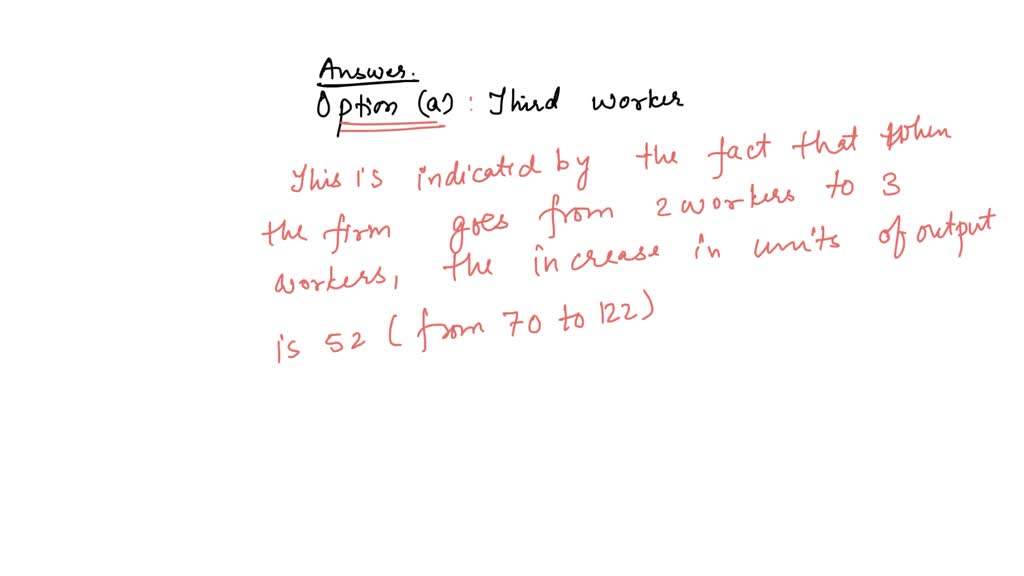 Answer.
Option (a) : Third worker
This is indicated by the fact that when
the firm goes from 2 workers to 3
workers, the increase in units of output
is 52 (from 70 to 122)